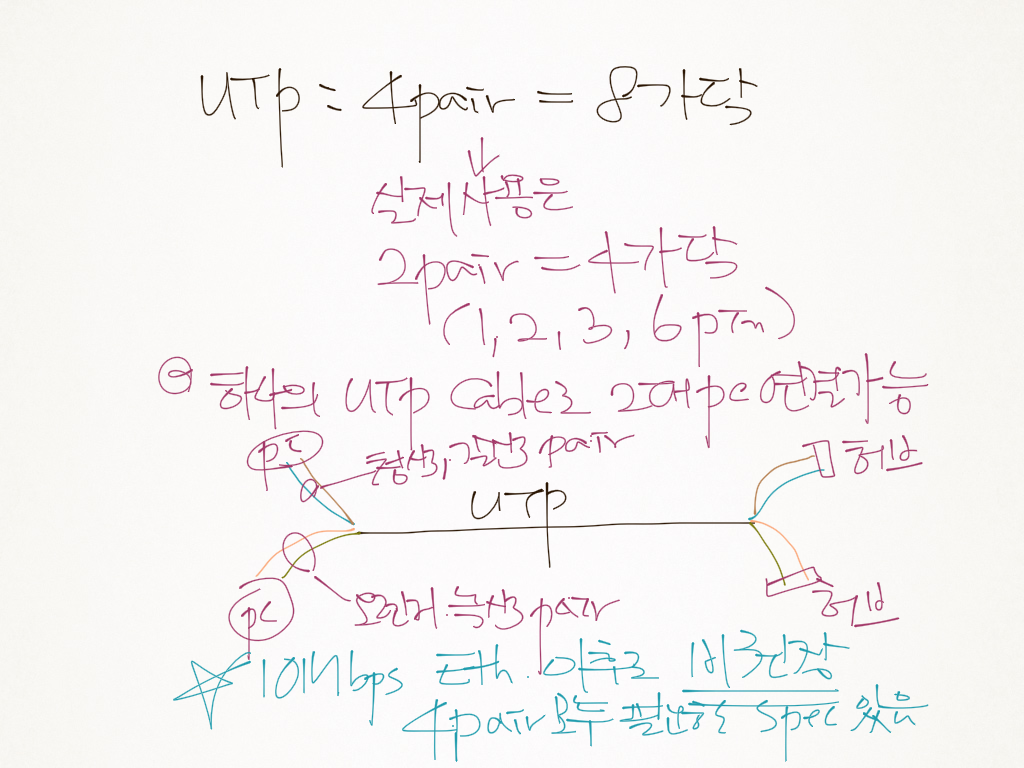 UTP = 4pair = 8가닥
실제사용은
2pair = 4가닥
(1, 2, 3, 6 pin)
하나의 UTP Cable로 2대 PC 연결가능
PC
청색, 갈색 pair
허브
UTP
PC
오렌지 녹색 pair
허브
☆ 10Mbps Eth. 이후로 비권장
4pair 모두 필요한 Spec 있음